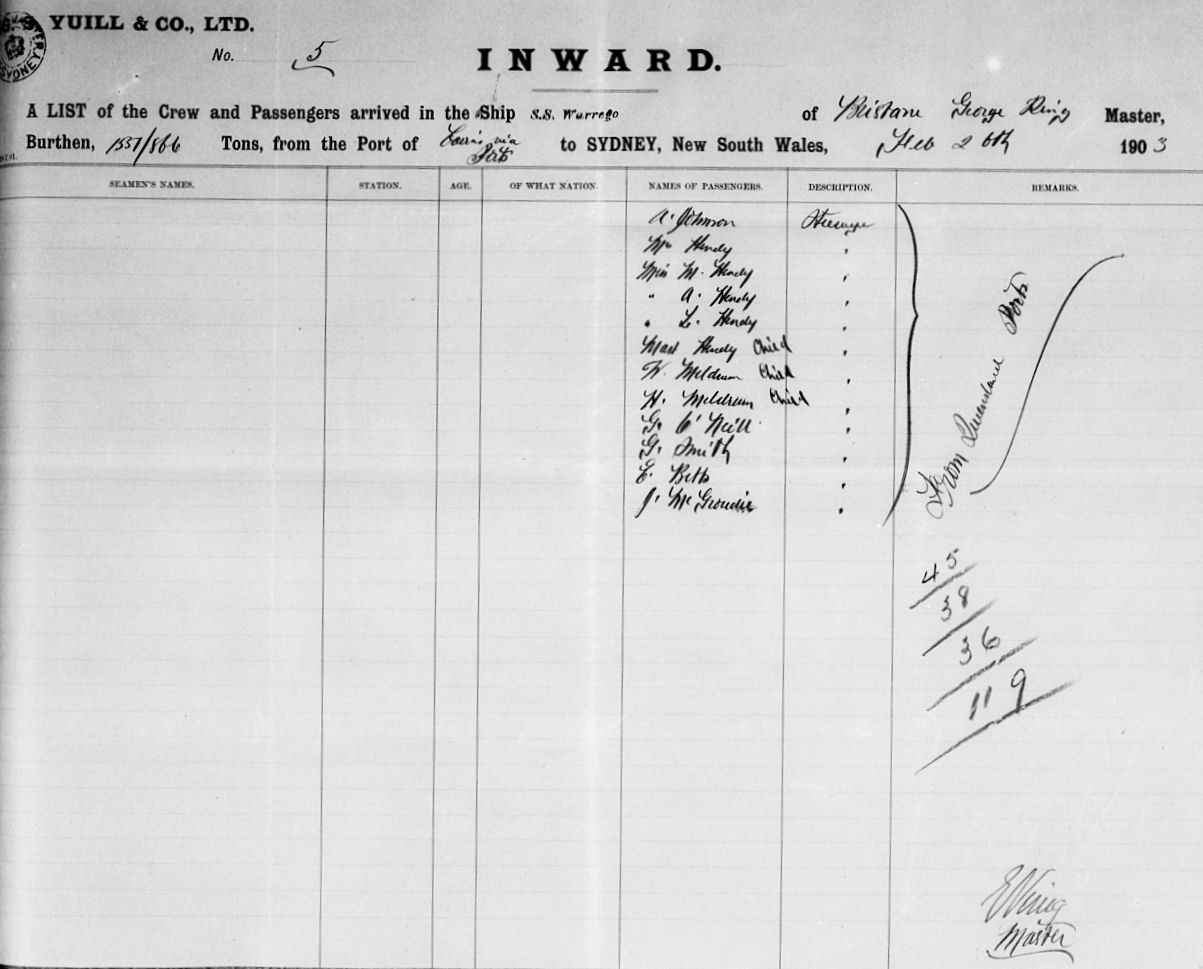 YUILL & CO., LTD.
SYDNEY
No. 5
INWARD.
A LIST of the Crew and Passengers arrived in the Ship S.S. Warrego of Brisbane George King Master,
Burthen, 1537/866 Tons, from the Port of Cairns via Ports to SYDNEY, New South Wales, Feb 26th 1903
SEAMEN'S NAMES. STATION. AGE. OF WHAT NATION. NAMES OF PASSENGERS. DESCRIPTION. REMARKS.
A. Johnson Steerage
Mr Hendy "
Miss M. Hendy "
" A. Hendy "
" L. Hendy "
Mast Hendy Child "
W. Meldrum Child "
H. Meldrum Child "
G. O'Neill "
G. Smith "
E. Betts "
J. Mc "
From Queensland Ports
45
38
36
119
King
Master